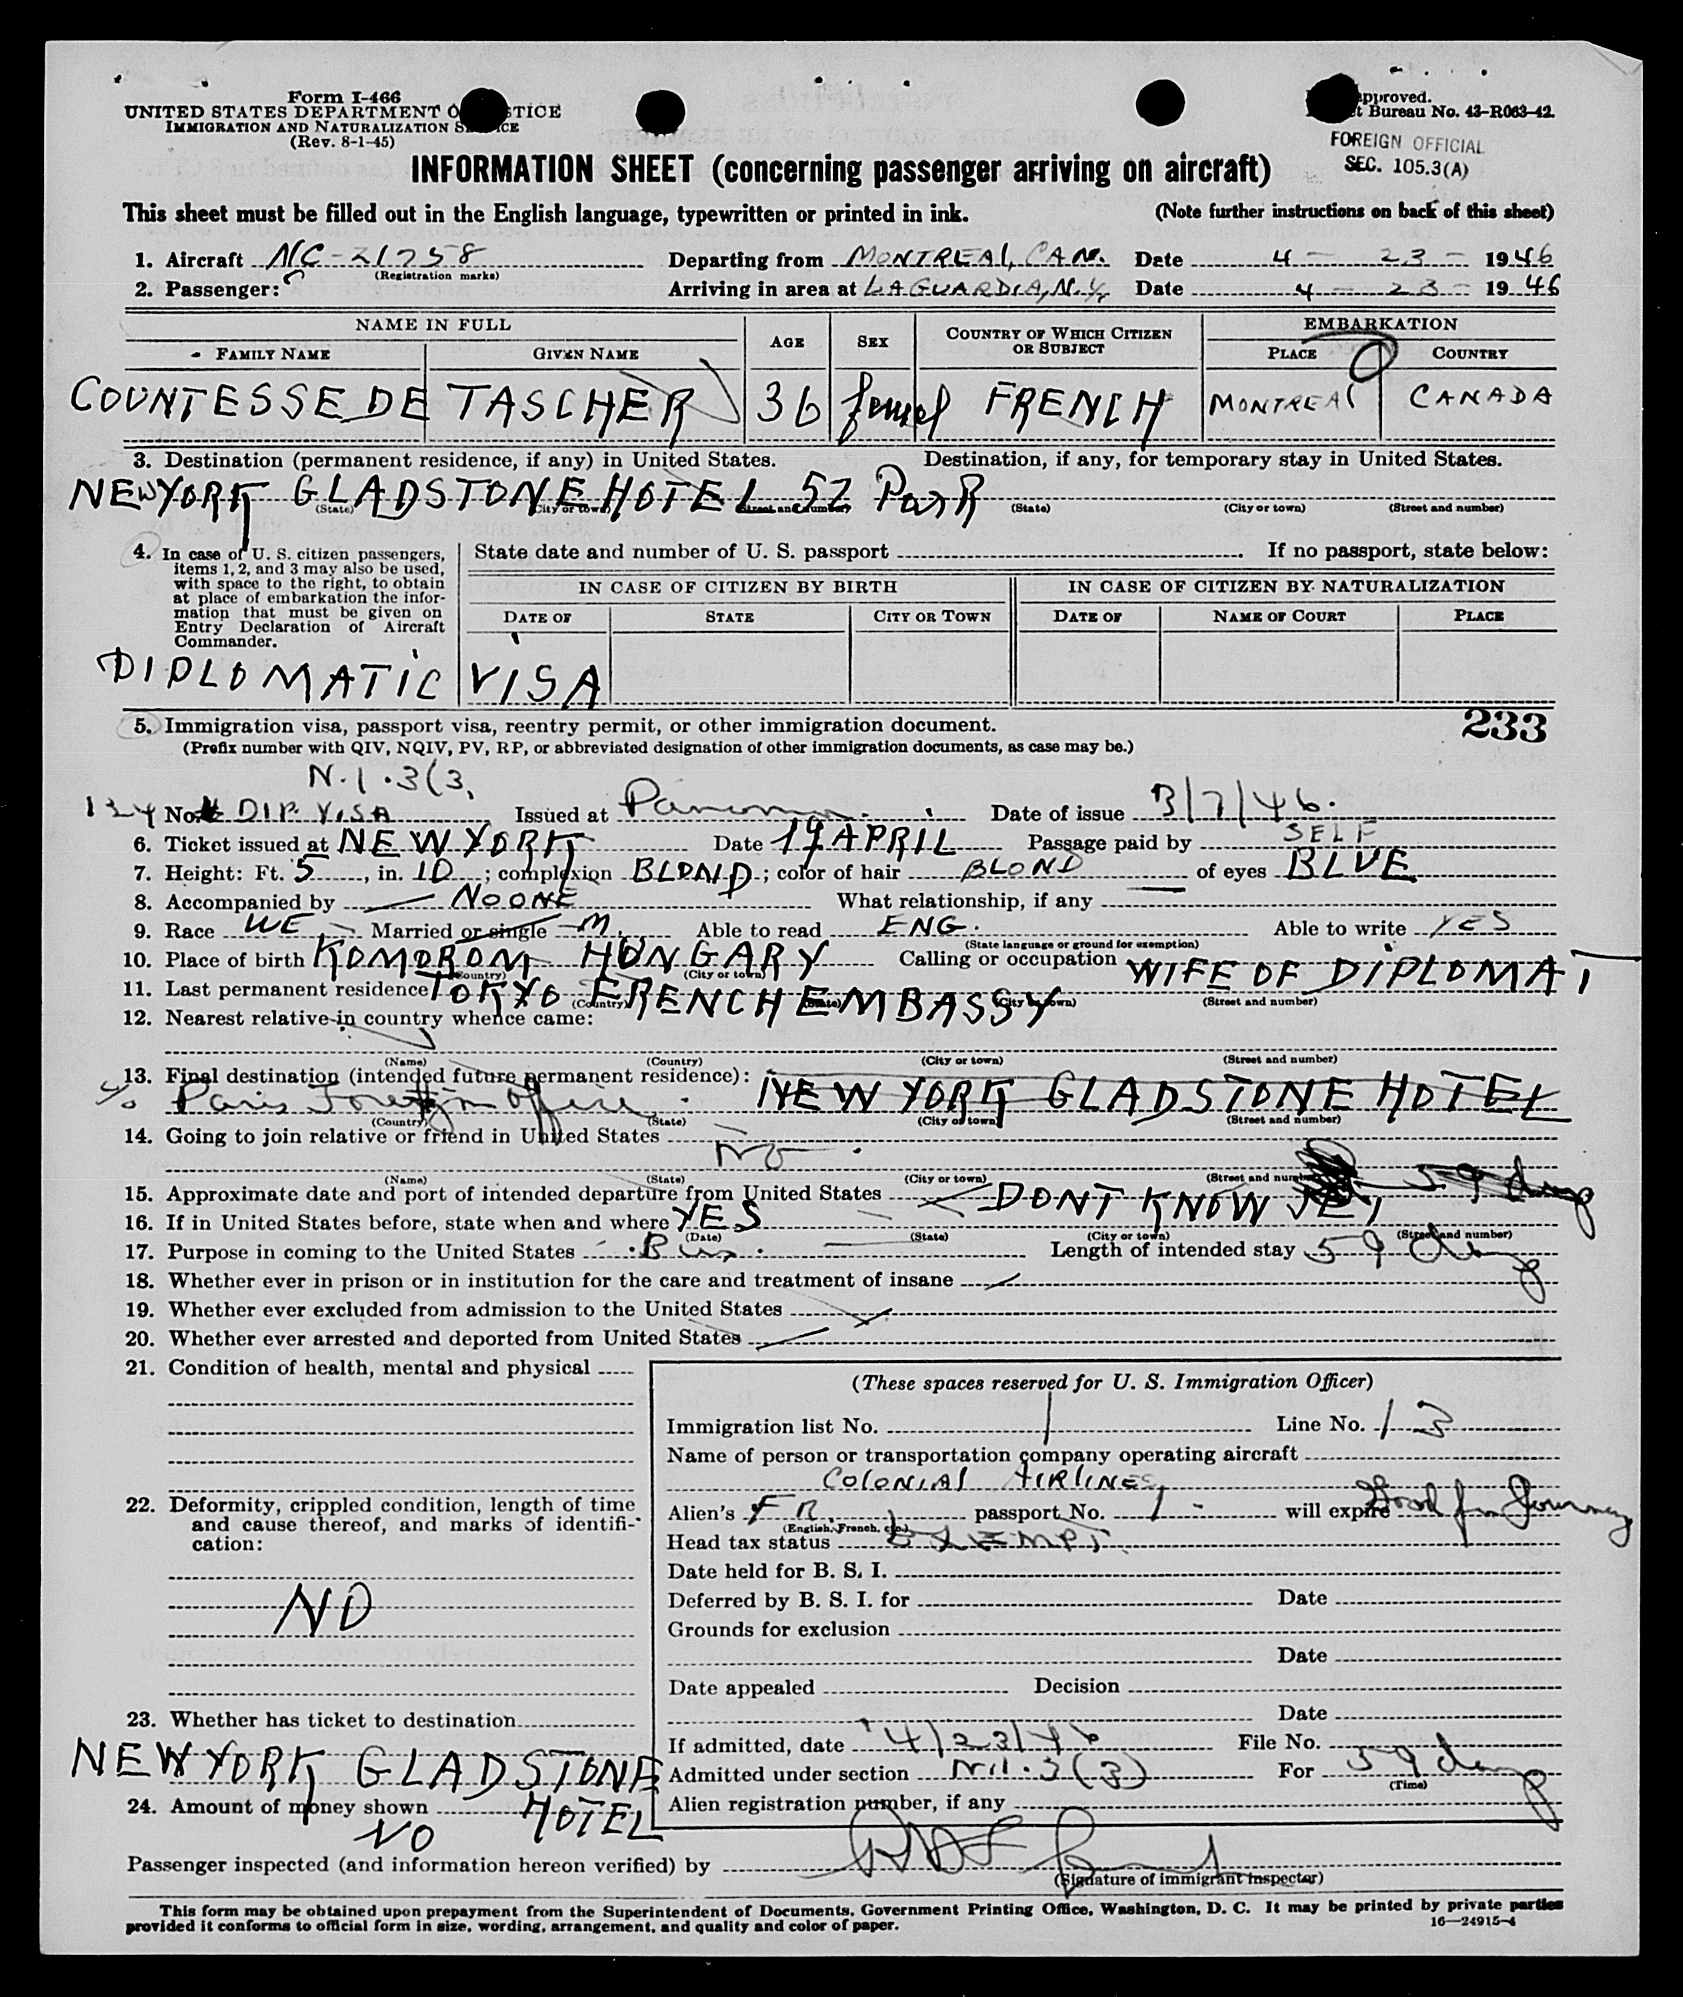 Form I-466
UNITED STATES DEPARTMENT O STICE
IMMIGRATION AND NATURALIZATION SE ICE
(Rev. 8-1-45)
pproved.
t Bureau No. 43-R063-42.
FOREIGN OFFICIAL
SEC. 105.3(A)
INFORMATION SHEET (concerning passenger arriving on aircraft)
This sheet must be filled out in the English language, typewritten or printed in ink. (Note further instructions on back of this sheet)
1. Aircraft NC-21758 Departing from MONTREAL, CAN. Date 4-23-1946
(Registration marks)
2. Passenger: Arriving in area at LAGUARDIA, N.Y. Date 4-23-1946
NAME IN FULL AGE SEX COUNTRY OF WHICH CITIZEN OR SUBJECT EMBARKATION
FAMILY NAME GIVEN NAME PLACE COUNTRY
COUNTESSE DE TASCHER 36 FRENCH MONTREAL CANADA
3. Destination (permanent residence, if any) in United States. Destination, if any, for temporary stay in United States.
NEW YORK GLADSTONE HOTEL 52 Park
(State) (City or town) (Street and number) (State) (City or town) (Street and number)
4. In case of U. S. citizen passengers, items 1, 2, and 3 may also be used, with space to the right, to obtain at place of embarkation the information that must be given on Entry Declaration of Aircraft Commander.
State date and number of U. S. passport If no passport, state below:
IN CASE OF CITIZEN BY BIRTH IN CASE OF CITIZEN BY NATURALIZATION
DATE OF STATE CITY OR TOWN DATE OF NAME OF COURT PLACE
DIPLOMATIC VISA
5. Immigration visa, passport visa, reentry permit, or other immigration document. 233
(Prefix number with QIV, NQIV, PV, RP, or abbreviated designation of other immigration documents, as case may be.)
N.I.3(3,
134 No. DIP. VISA Issued at Date of issue 3/7/46.
6. Ticket issued at NEW YORK Date 19 APRIL Passage paid by SELF
7. Height: Ft. 5, in. 10; complexion BLOND; color of hair BLOND of eyes BLUE
8. Accompanied by NOONE What relationship, if any
9. Race WE Married or single M. Able to read ENG. Able to write YES
(State language or ground for exemption)
10. Place of birth KOMOROM HUNGARY Calling or occupation WIFE OF DIPLOMAT
(Country) (City or town)
11. Last permanent residence TOKYO FRENCH EMBASSY
(Country) (State) (City or town) (Street and number)
12. Nearest relative in country whence came:
(Name) (Country) (City or town) (Street and number)
13. Final destination (intended future permanent residence): NEW YORK GLADSTONE HOTEL
c/o Paris Foreign Office
(Country) (State) (City or town) (Street and number)
14. Going to join relative or friend in United States
No.
(Name) (State) (City or town) (Street and number)
15. Approximate date and port of intended departure from United States DONT KNOW YET 59 days
16. If in United States before, state when and where YES
(Date) (State) (City or town) (Street and number)
17. Purpose in coming to the United States Bus. Length of intended stay 59 days
18. Whether ever in prison or in institution for the care and treatment of insane
19. Whether ever excluded from admission to the United States
20. Whether ever arrested and deported from United States
21. Condition of health, mental and physical
22. Deformity, crippled condition, length of time and cause thereof, and marks of identification:
NO
23. Whether has ticket to destination
NEW YORK GLADSTONE HOTEL
24. Amount of money shown
NO
(These spaces reserved for U. S. Immigration Officer)
Immigration list No. 1 Line No. 13
Name of person or transportation company operating aircraft
COLONIAL AIRLINES
Alien's FR. passport No. 1 - will expire Good for Journey
(English, French, etc.)
Head tax status EXEMPT
Date held for B. S. I.
Deferred by B. S. I. for Date
Grounds for exclusion
Date
Date appealed Decision
Date
If admitted, date 4/23/46 File No.
Admitted under section N.I.3(3) For 59 days
(Time)
Alien registration number, if any
Passenger inspected (and information hereon verified) by
(Signature of immigrant inspector)
This form may be obtained upon prepayment from the Superintendent of Documents, Government Printing Office, Washington, D. C. It may be printed by private parties
provided it conforms to official form in size, wording, arrangement, and quality and color of paper. 16—24915-4